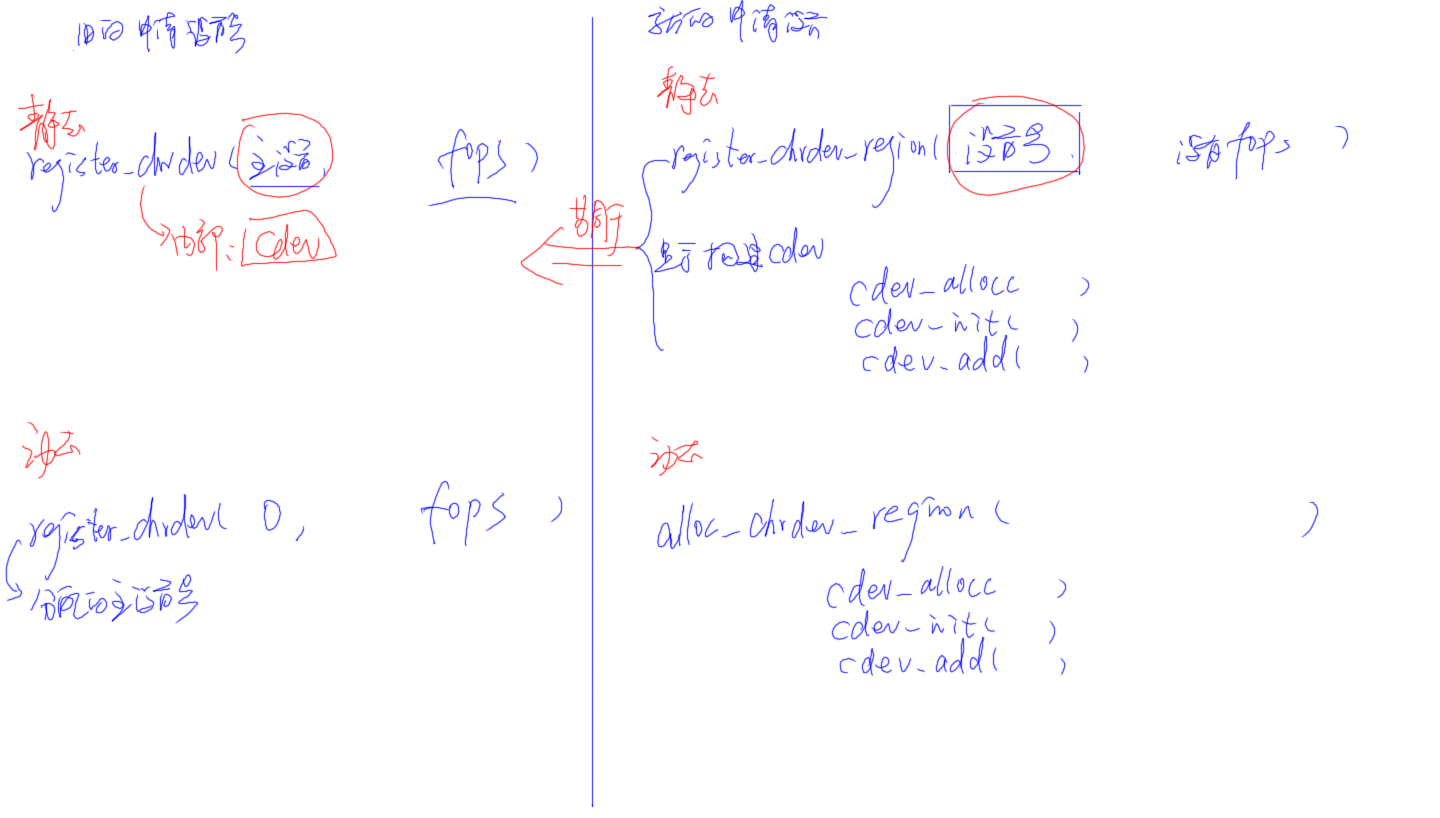 旧的申请设备号
静态
register_chrdev(主设备, fops)
内部: cdev
动态
register_chrdev( 0, fops )
分配的主设备号
新的申请设备
静态
register_chrdev_region( 设备号, 没有fops )
等同于
显示构建cdev
cdev_alloc( )
cdev_init( )
cdev_add( )
动态
alloc_chrdev_region( )
cdev_alloc( )
cdev_init( )
cdev_add( )